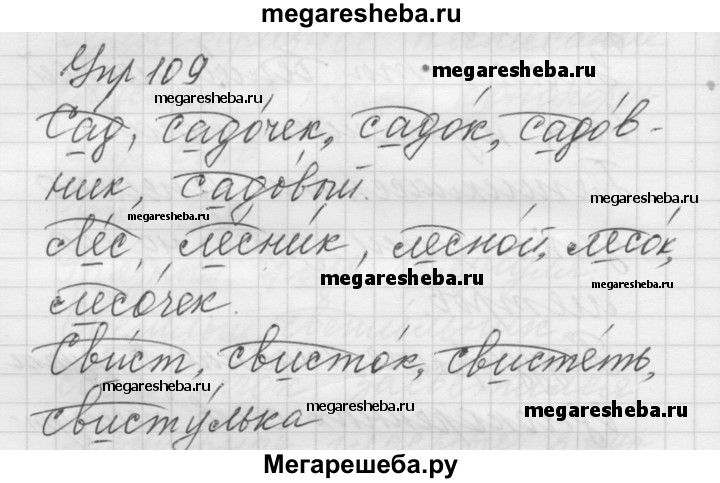 megaresheba.ru
Упр 109
megaresheba.ru
megaresheba.ru
Сад, садо́чек, садо́к, садо́в-
megaresheba.ru
ник, садо́вый.
megaresheba.ru
megaresheba.ru
Ле́с, лесни́к, лесно́й, лесо́к,
megaresheba.ru
лесо́чек.
megaresheba.ru
Сви́ст, свисто́к, свисте́ть,
megaresheba.ru
свисту́лька
megaresheba.ru
megaresheba.ru
Мегарешеба.ру